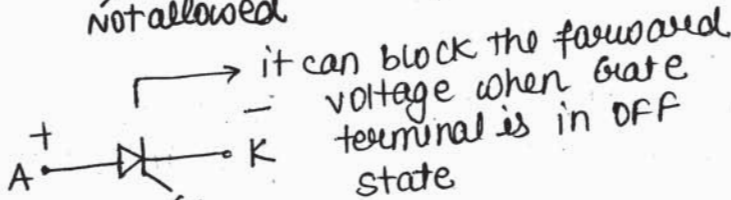 Not allowed
it can block the forward
voltage when Gate
terminal is in OFF
state
+
−
A
K